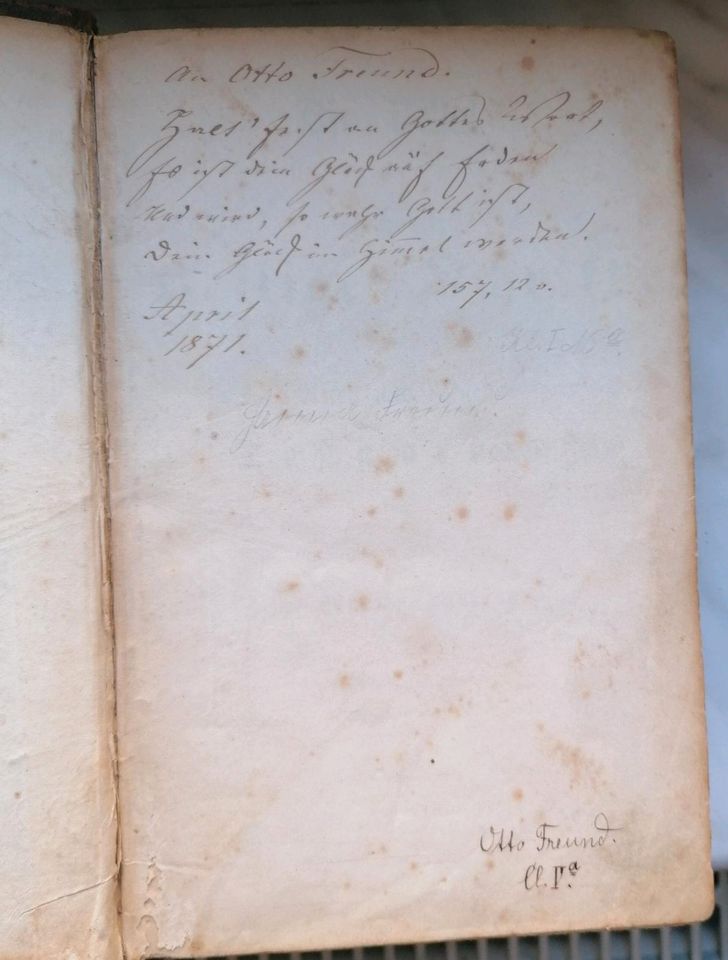 An Otto Freund.
Halt' fest an Gottes Wort,
Es ist dein Glück auf Erden
Und wird, so wahr Gott ist,
Dein Glück im Himmel werden.
157, 12 v.
April
1871.
Freund
Otto Freund.
Cl. Iª.